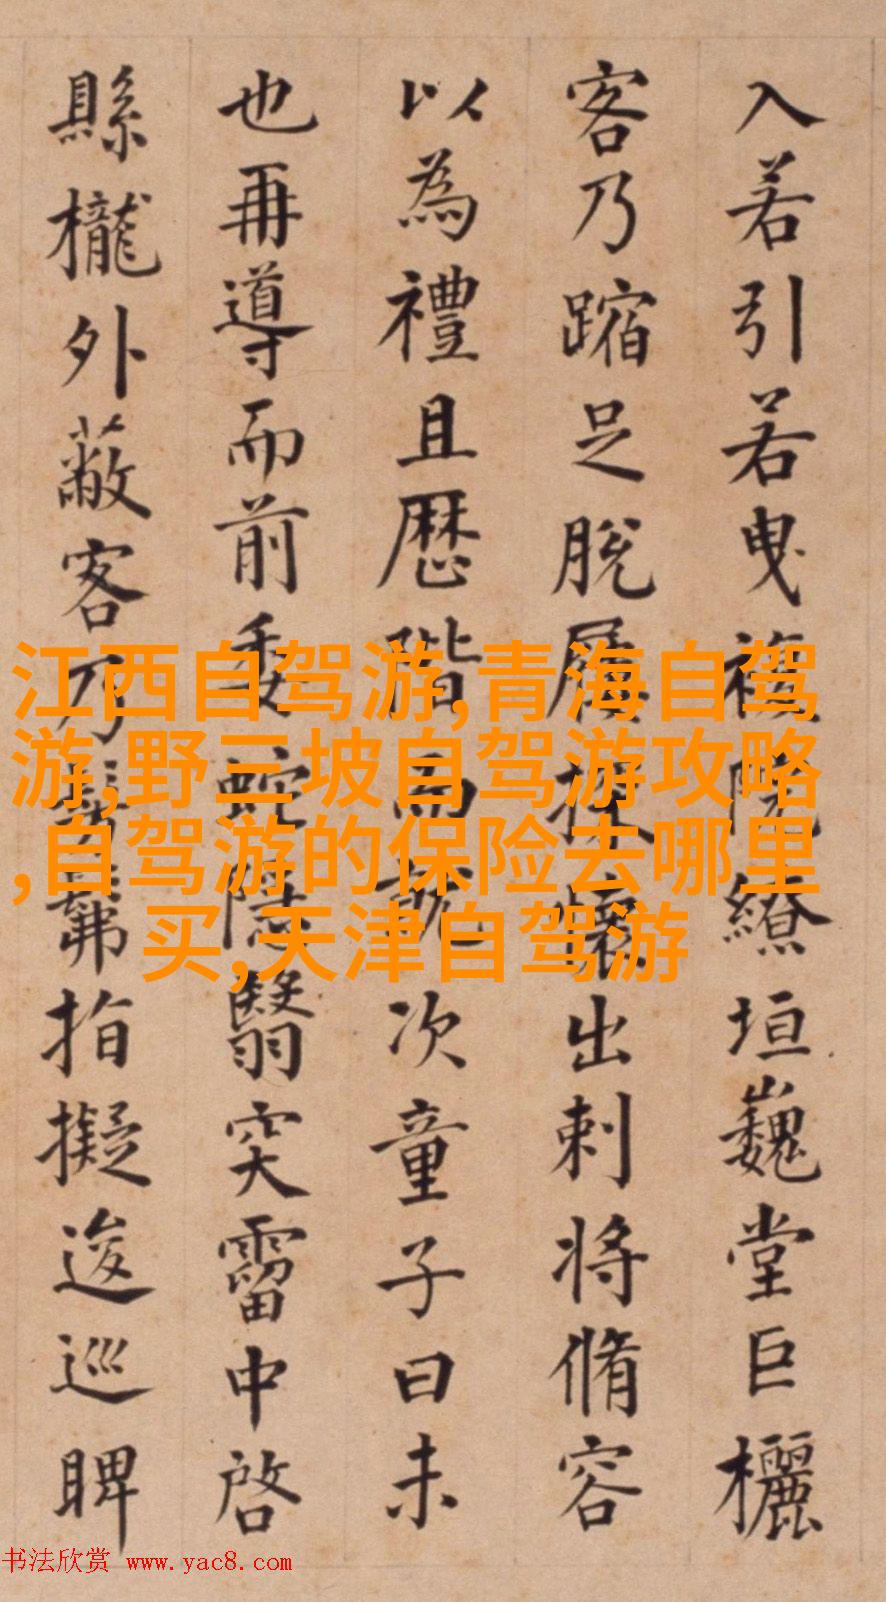 入若引若曳複院繚垣巍堂巨欐
客乃蹜足脫屨探懷出刺将脩容
以為禮且歷階而就次童子曰未
也再導而前委蛇隱翳突霤中啓
縣櫳外蔽客乃髣髴指擬逡巡睥
江西自驾游,青海自驾
游,野三坡自驾游攻略
,自驾游的保险去哪里
买,天津自驾游
书法欣赏 www.yac8.com